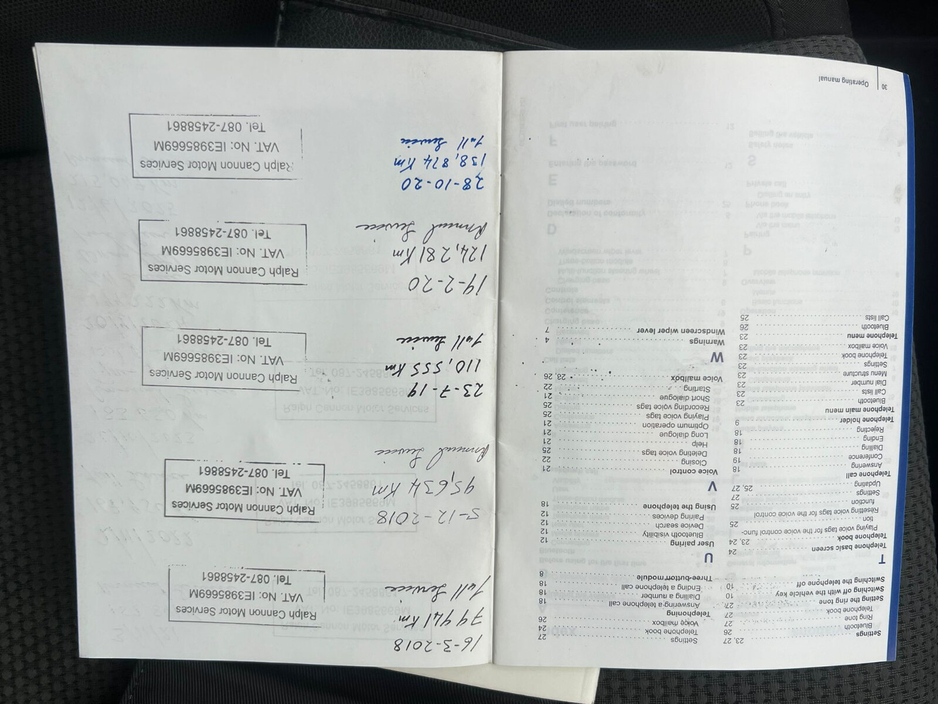 Settings 23, 27
Bluetooth 26
Ring tone
Telephone book
Setting the ring tone 27
Switching off with the vehicle key 10
Switching the telephone off 10
T
Telephone basic screen 24
Telephone book 23, 24
Playing voice tags for the voice control func-
tion 25
Resetting voice tags for the voice control
function 25
Settings 27
Updating 25, 27
Telephone call
Answering 18
Conference 19
Dialling 18
Ending 18
Rejecting 18
Telephone holder 9
Telephone main menu
Bluetooth 23
Call lists 23
Dial number 23
Menu structure 23
Settings 23
Telephone book 23
Voice mailbox 23
Telephone menu 23
Bluetooth 26
Call lists 25
Settings 27
Telephone book 24
Voice mailbox 26
Telephoning
Answering a telephone call 18
Dialling a number 18
Ending a telephone call 18
Three-button module 8
U
User pairing 12
Bluetooth visibility 12
Device search 12
Pairing devices 12
Using the telephone 18
V
Voice control 21
Closing 22
Deleting voice tags 25
Help 21
Long dialogue 21
Optimum operation 21
Playing voice tags 25
Recording voice tags 25
Short dialogue 21
Starting 22
Voice mailbox 23, 26
W
Warnings 4
Windscreen wiper lever 7
30 Operating manual
16-3-2018
79441 Km
Full Service
Ralph Cannon Motor Services
VAT. No: IE3985669M
Tel. 087-2458861
5-12-2018
95,634 Km
Annual Service
Ralph Cannon Motor Services
VAT. No: IE3985669M
Tel. 087-2458861
23-7-19
110,555 Km
Full Service
Ralph Cannon Motor Services
VAT. No: IE3985669M
Tel. 087-2458861
14-2-20
124,281 Km
Annual Service
Ralph Cannon Motor Services
VAT. No: IE3985669M
Tel. 087-2458861
28-10-20
138,874 Km
Full Service
Ralph Cannon Motor Services
VAT. No: IE3985669M
Tel. 087-2458861